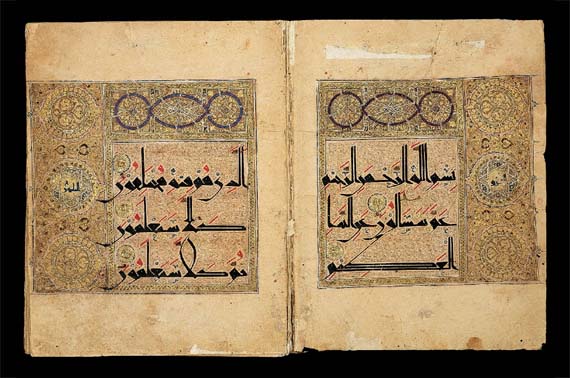 بسم الله الرحمن الرحيم
عم يتسالون عن النبا
العظيم
الذي هم فيه مختلفون
كلا سيعلمون
ثم كلا سيعلمون